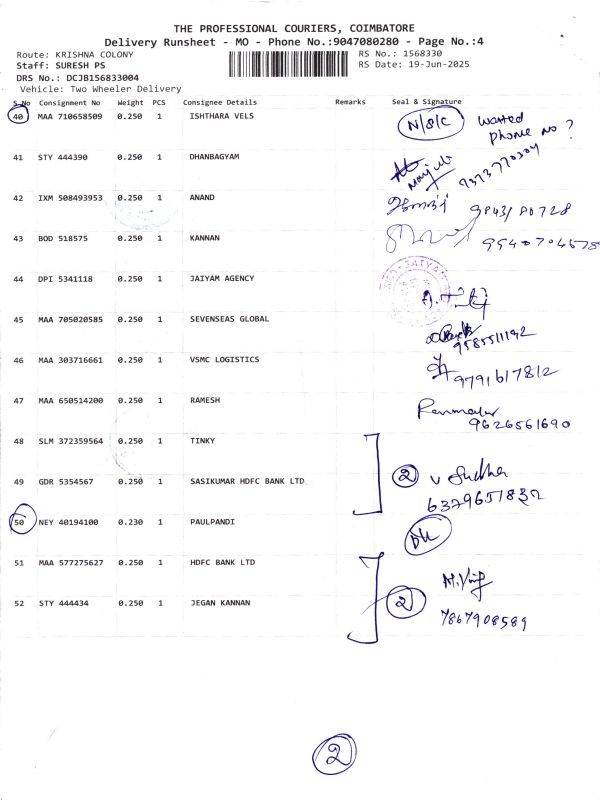 THE PROFESSIONAL COURIERS, COIMBATORE
Delivery Runsheet - MO - Phone No.:9047080280 - Page No.:4
Route: KRISHNA COLONY RS No.: 1568330
Staff: SURESH PS RS Date: 19-Jun-2025
DRS No.: DCJB156833004
Vehicle: Two Wheeler Delivery
S.No Consignment No Weight PCS Consignee Details Remarks Seal & Signature
40 MAA 710658509 0.250 1 ISHTHARA VELS N/S/C wanted phone no ?
41 STY 444390 0.250 1 DHANBAGYAM 9373770304
42 IXM 508493953 0.250 1 ANAND
43 BOD 518575 0.250 1 KANNAN 9540704578
44 DPI 5341118 0.250 1 JAIYAM AGENCY
45 MAA 705020585 0.250 1 SEVENSEAS GLOBAL 9585511192
46 MAA 303716661 0.250 1 VSMC LOGISTICS 9791617812
47 MAA 650514200 0.250 1 RAMESH 9626561690
48 SLM 372359564 0.250 1 TINKY
49 GDR 5354567 0.250 1 SASIKUMAR HDFC BANK LTD 2 V Sudha
6379651832
50 NEY 40194100 0.230 1 PAULPANDI DL
51 MAA 577275627 0.250 1 HDFC BANK LTD
52 STY 444434 0.250 1 JEGAN KANNAN 2 7867908589
2